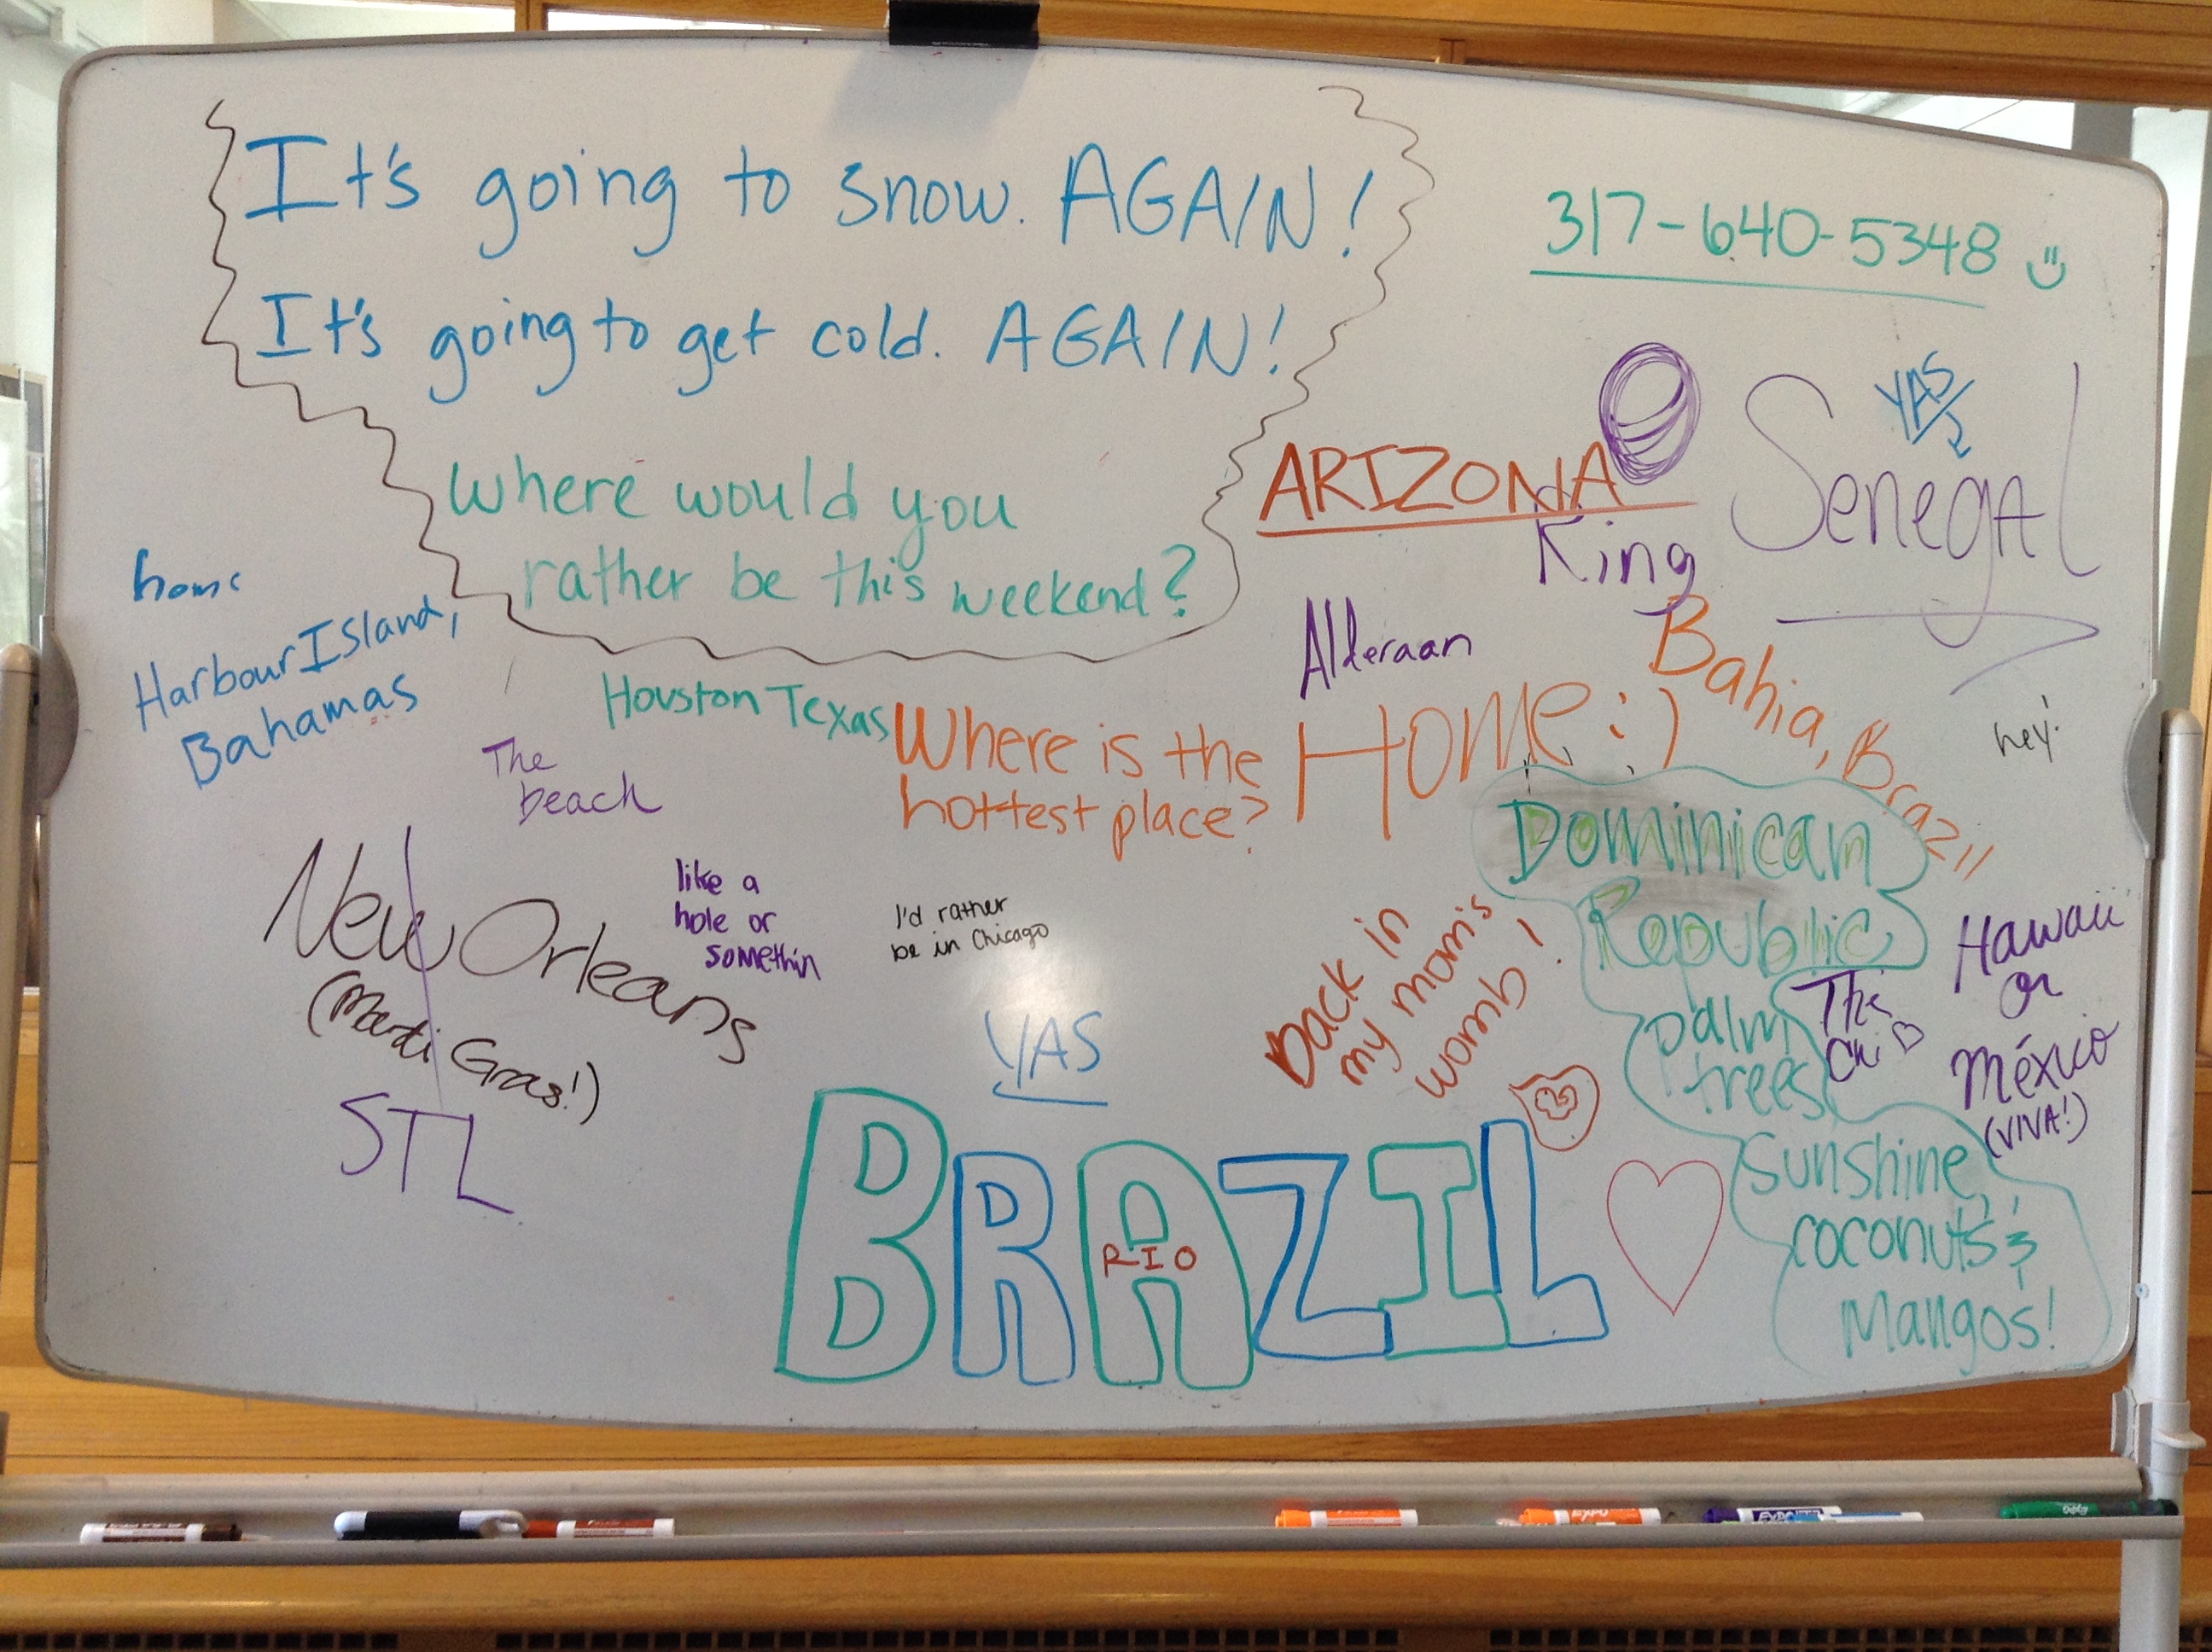 It's going to snow. AGAIN!
It's going to get cold. AGAIN!
Where would you
rather be this weekend?
317-640-5348
YAS
ARIZONA
King
Senegal
home
Harbour Island,
Bahamas
Alderaan
Bahia, Brazil
hey!
Houston Texas
The
beach
Where is the
hottest place?
Home :)
New Orleans
(Mardi Gras!)
like a
hole or
somethin
I'd rather
be in Chicago
Back in
my mom's
womb!
Dominican
Republic
palm
trees
sunshine,
coconuts &
Mangos!
The
Chi
Hawaii
or
México
(VIVA!)
STL
YAS
BRAZIL
RIO
EXPO
EXPO
expo